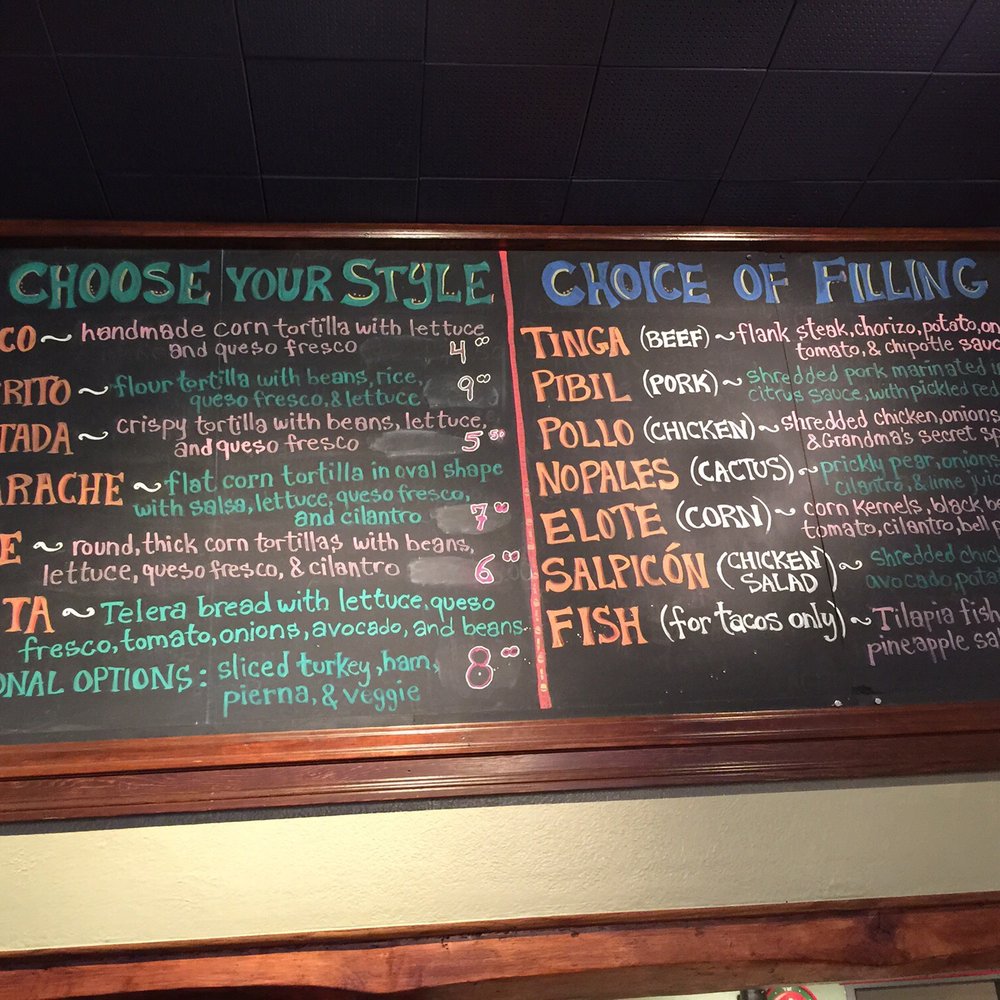 CHOOSE YOUR STYLE
CO ~ handmade corn tortilla with lettuce,
and queso fresco 4⁰⁰
RITO ~ flour tortilla with beans, rice,
queso fresco, & lettuce 9⁰⁰
TADA ~ crispy tortilla with beans, lettuce,
and queso fresco 5⁵⁰
ARACHE ~ flat corn tortilla in oval shape
with salsa, lettuce, queso fresco,
and cilantro 7⁰⁰
E ~ round, thick corn tortillas with beans,
lettuce, queso fresco, & cilantro 6⁰⁰
TA ~ Telera bread with lettuce, queso
fresco, tomato, onions, avocado, and beans
ONAL OPTIONS: sliced turkey, ham, 8⁰⁰
pierna, & veggie
CHOICE OF FILLING
TINGA (BEEF) ~ flank steak, chorizo, potato, on
tomato, & chipotle sauc
PIBIL (PORK) ~ shredded pork marinated i
citrus sauce, with pickled red
POLLO (CHICKEN) ~ shredded chicken, onions
& Grandma's secret
NOPALES (CACTUS) ~ prickly pear, onions
cilantro, & lime juic
ELOTE (CORN) ~ corn kernels, black b
tomato, cilantro, bell
SALPICÓN (CHICKEN SALAD) ~ shredded chick
avocado, pota
FISH (for tacos only) ~ Tilapia fish
pineapple sa